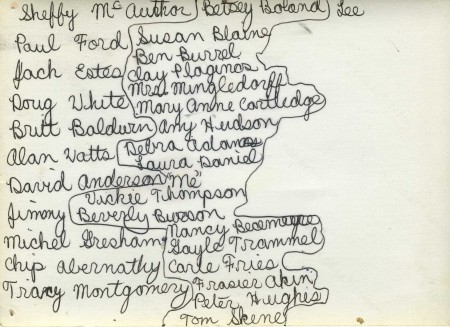 Sheffy Mc Author Betsey Boland Lee
Paul Ford Susan Blaine
Ben Burrel
Jack Estes Clay Plaginos
Mrs. Mingledorff
Doug White Mary Anne Cartledge
Britt Baldwin Amy Hudson
Alan Watts Debra Adams
Laura Daniel
David Anderson "Me"
Vickie Thompson
Jimmy Beverly Burson
Nancy
Michel Gresham Gayle Trammel
Chip Abernathy Carle Fries
Tracy Montgomery Frasier Akin
Peter Hughes
Tom Skene